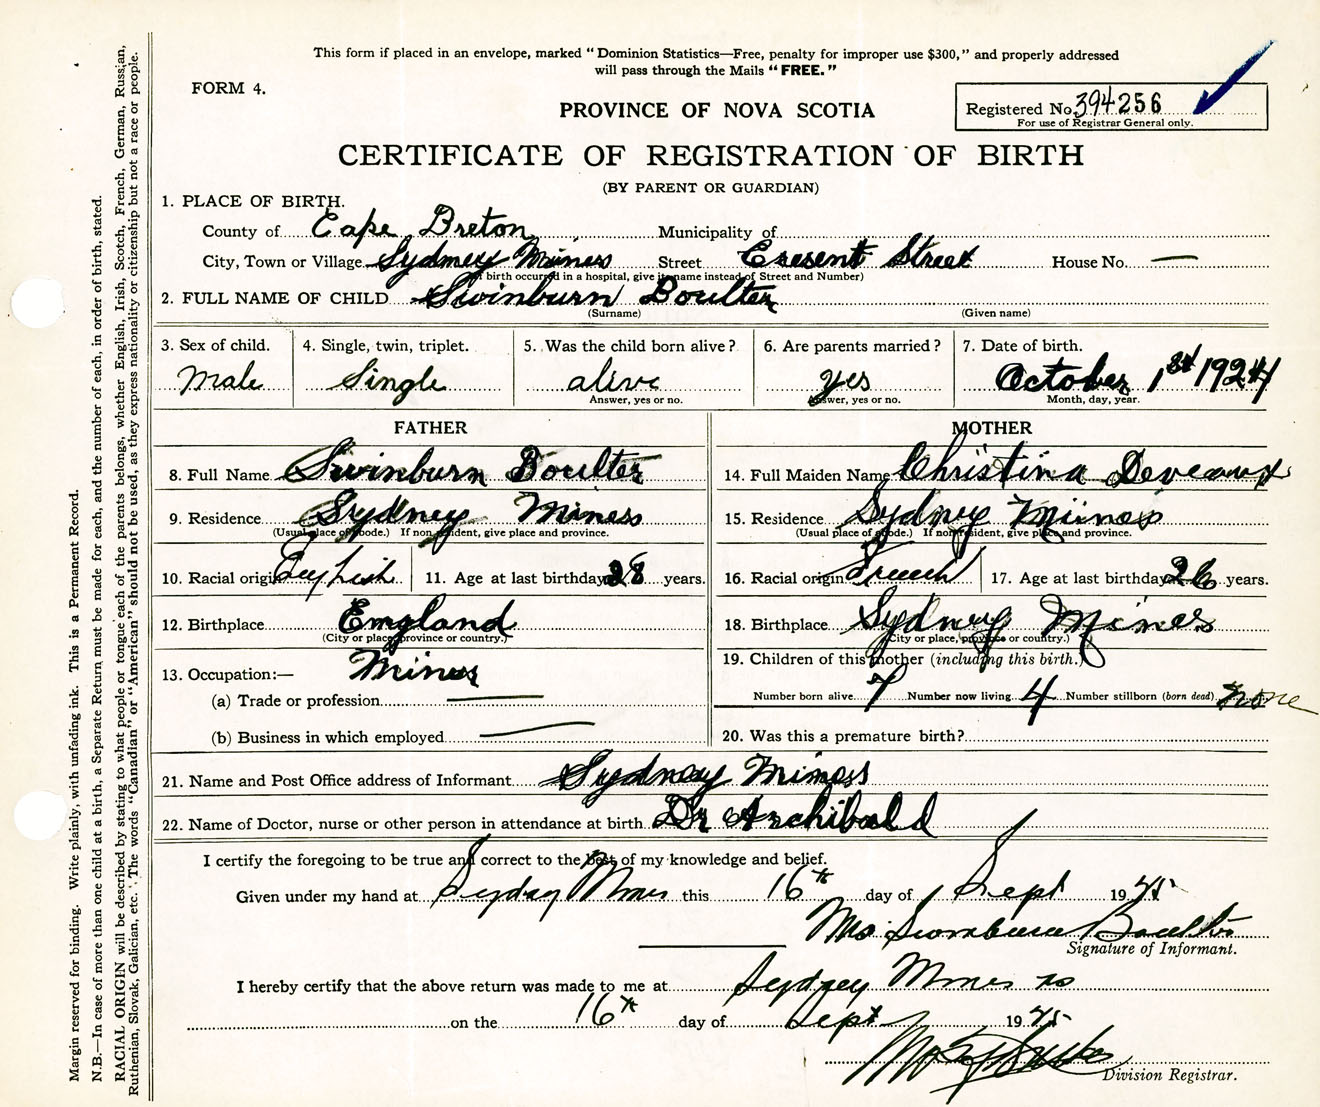 This form if placed in an envelope, marked "Dominion Statistics—Free, penalty for improper use $300," and properly addressed
will pass through the Mails "FREE."
FORM 4.
PROVINCE OF NOVA SCOTIA
Registered No. 394256
For use of Registrar General only.
CERTIFICATE OF REGISTRATION OF BIRTH
(BY PARENT OR GUARDIAN)
1. PLACE OF BIRTH.
County of Cape Breton Municipality of
City, Town or Village Sydney Miness Street Cresent Street House No. —
(If birth occurred in a hospital, give its name instead of Street and Number)
2. FULL NAME OF CHILD Swinburn Boulter
(Surname) (Given name)
3. Sex of child. 4. Single, twin, triplet. 5. Was the child born alive? 6. Are parents married? 7. Date of birth.
Male Single alive yes October 1st 1924
Answer, yes or no. Answer, yes or no. Month, day, year.
FATHER MOTHER
8. Full Name Swinburn Boulter 14. Full Maiden Name Christina Deveaux
9. Residence Sydney Miness 15. Residence Sydney Mines
(Usual place of abode.) If non-resident, give place and province. (Usual place of abode.) If non-resident, give place and province.
10. Racial origin English 11. Age at last birthday 28 years. 16. Racial origin French 17. Age at last birthday 26 years.
12. Birthplace England 18. Birthplace Sydney Mines
(City or place, province or country.) (City or place, province or country.)
13. Occupation:— Miner 19. Children of this mother (including this birth.)
(a) Trade or profession Number born alive 7 Number now living 4 Number stillborn (born dead) none
(b) Business in which employed 20. Was this a premature birth?
21. Name and Post Office address of Informant Sydney Mines
22. Name of Doctor, nurse or other person in attendance at birth Dr Archibald
I certify the foregoing to be true and correct to the best of my knowledge and belief.
Given under my hand at Sydney Mines this 16th day of Sept 19
Mrs Swinburn Boulter
Signature of Informant.
I hereby certify that the above return was made to me at Sydney Mines ns
on the 16th day of Sept 19
Division Registrar.
Margin reserved for binding. Write plainly, with unfading ink. This is a Permanent Record.
N.B.—In case of more than one child at a birth, a Separate Return must be made for each, and the number of each, in order of birth, stated.
RACIAL ORIGIN will be described by stating to what people or tongue each of the parents belongs, whether English, Irish, Scotch, French, German, Russian,
Ruthenian, Slovak, Galician, etc. The words "Canadian" or "American" should not be used, as they express nationality or citizenship but not a race or people.